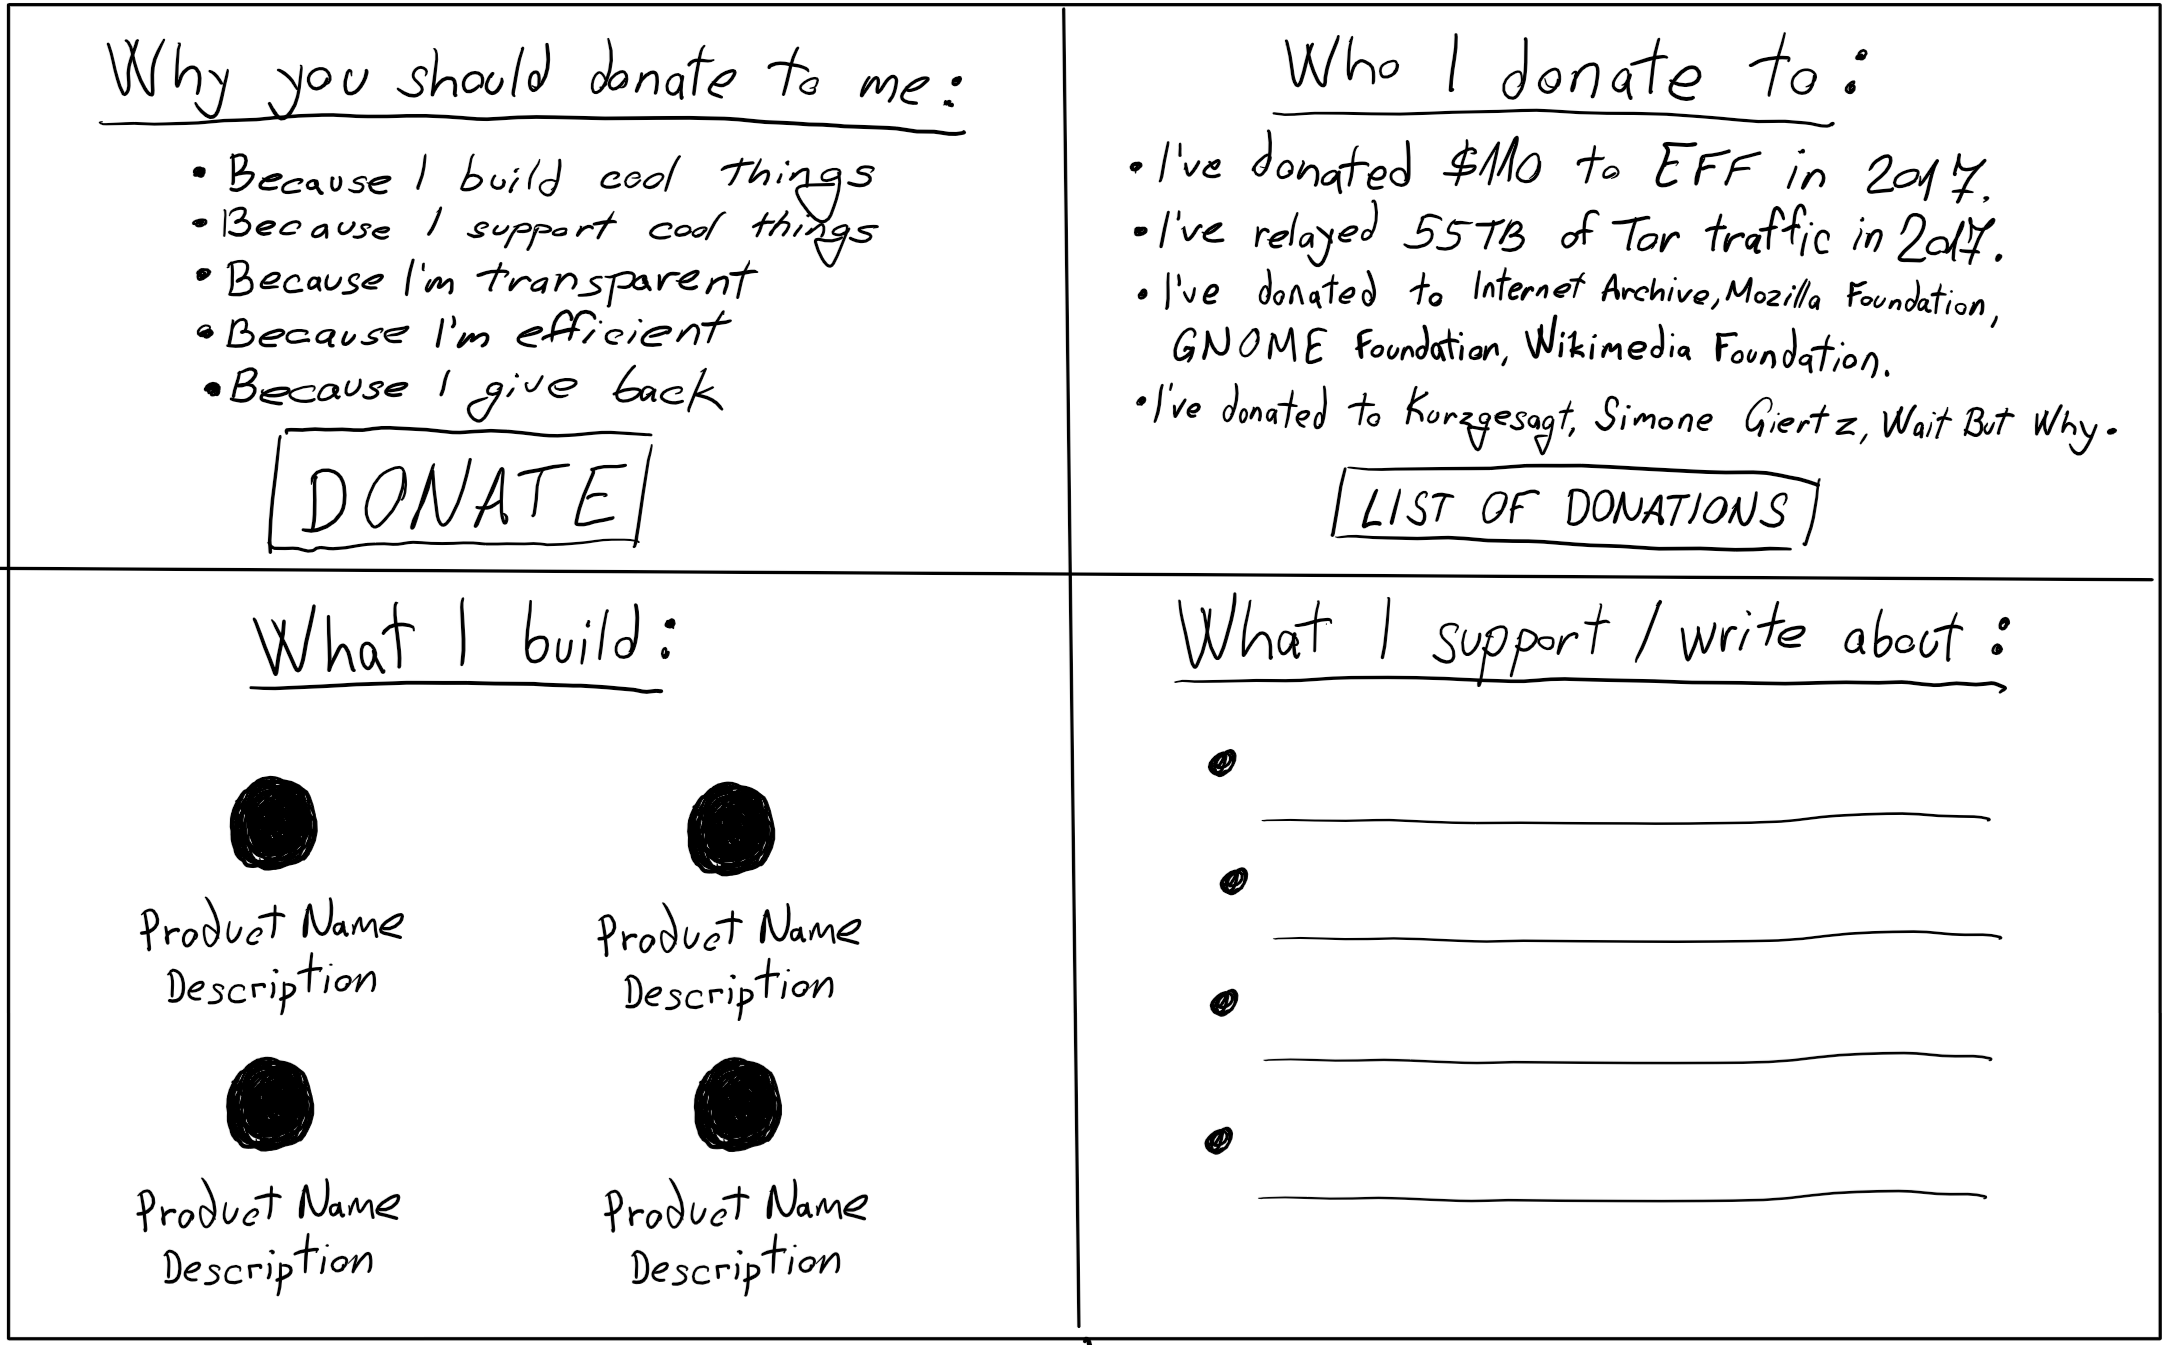 Why you should donate to me:
• Because I build cool things
• Because I support cool things
• Because I'm transparent
• Because I'm efficient
• Because I give back
DONATE
Who I donate to:
• I've donated $110 to EFF in 2017.
• I've relayed 55TB of Tor traffic in 2017.
• I've donated to Internet Archive, Mozilla Foundation,
GNOME Foundation, Wikimedia Foundation.
• I've donated to Kurzgesagt, Simone Giertz, Wait But Why.
LIST OF DONATIONS
What I build:
Product Name
Description
Product Name
Description
Product Name
Description
Product Name
Description
What I support / write about: